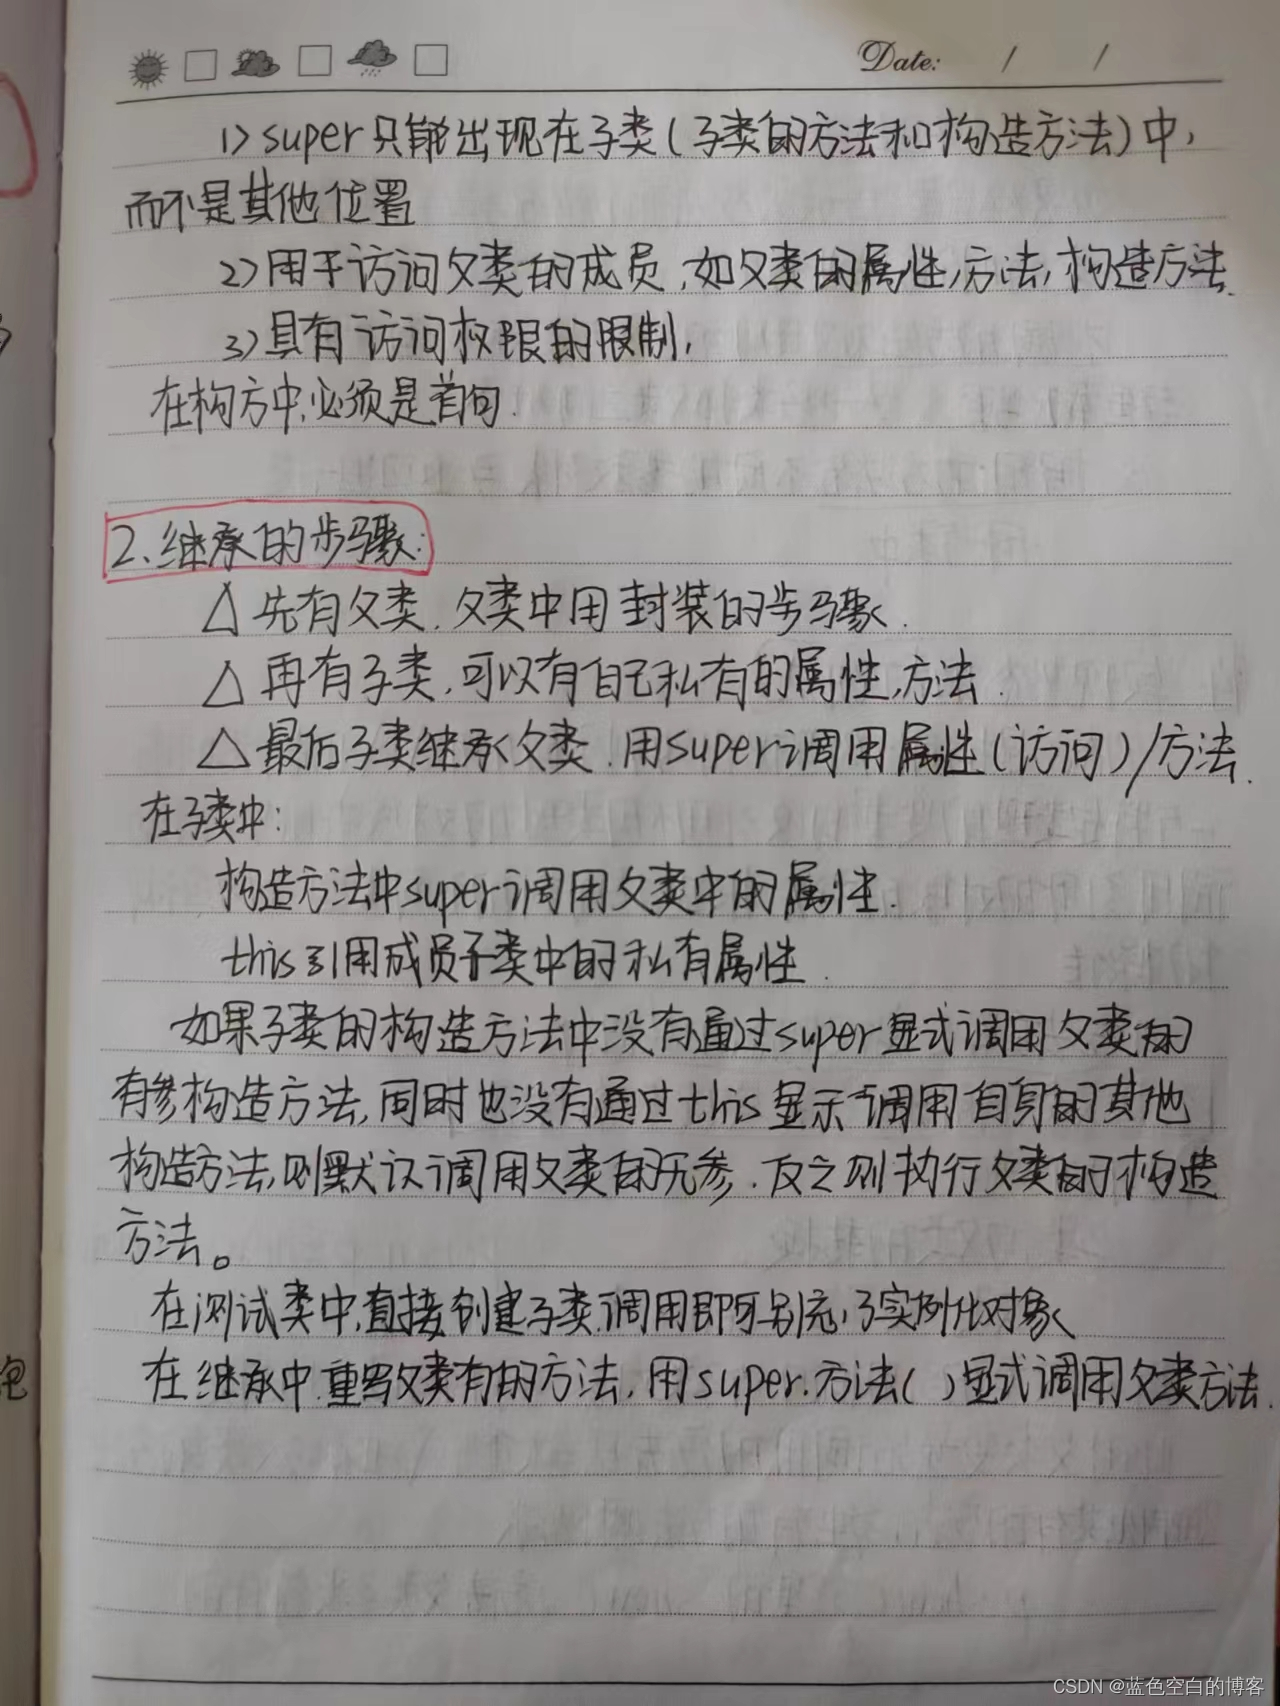 Date: / /
1>super只能出现在子类(子类的方法和构造方法)中,
而不是其他位置
2>用于访问父类的成员,如父类的属性,方法,构造方法.
3>具有访问权限的限制,
在构方中,必须是首句.
2、继承的步骤:
△先有父类.父类中用封装的步骤.
△再有子类,可以有自己私有的属性,方法.
△最后子类继承父类.用super调用属性(访问)/方法.
在子类中:
构造方法中super调用父类中的属性.
this引用成员子类中的私有属性.
如果子类的构造方法中没有通过super显式调用父类的
有参构造方法,同时也没有通过this显示调用自身的其他
构造方法,则默认调用父类的无参.反之则执行父类的构造
方法。
在测试类中,直接创建子类,调用即可,实例化对象
在继承中.重写父类有的方法,用super.方法( )显式调用父类方法.
CSDN @蓝色空白的博客